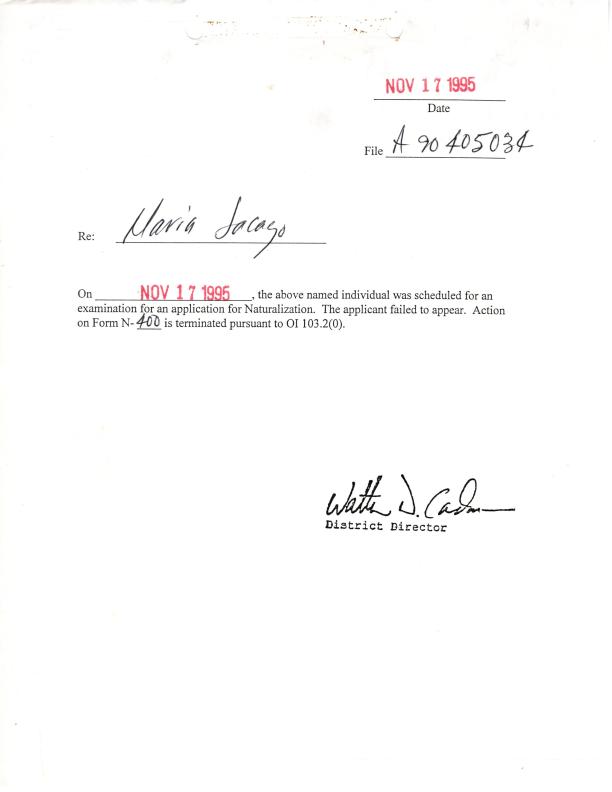 NOV 17 1995
Date
File A 90 405034
Re: Maria Sacayo
On NOV 17 1995, the above named individual was scheduled for an
examination for an application for Naturalization. The applicant failed to appear. Action
on Form N-400 is terminated pursuant to OI 103.2(0).
Walter D. Cadman
District Director